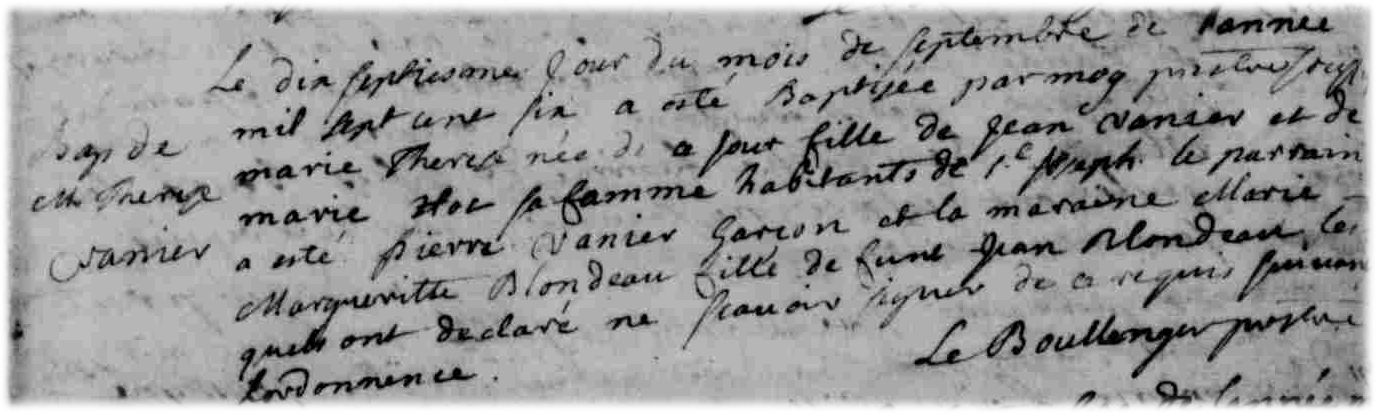 Le dix septiesme Jour du mois de septembre de Lannee
mil sept cent six a esté Baptisée par moy prestre
Bap de
marie Therese née de ce jour fille de Jean vanier et de
M Therese
marie sa famme habitants de St Joseph le parrain
vanier
a esté pierre vanier garçon et la maraine Marie
Margueritte Blondeau fille de funt Jean Blondeau les
quels ont declaré ne scavoir signer de ce requis suivan
lordonnence.
Le Boullenger prestre
de lannée